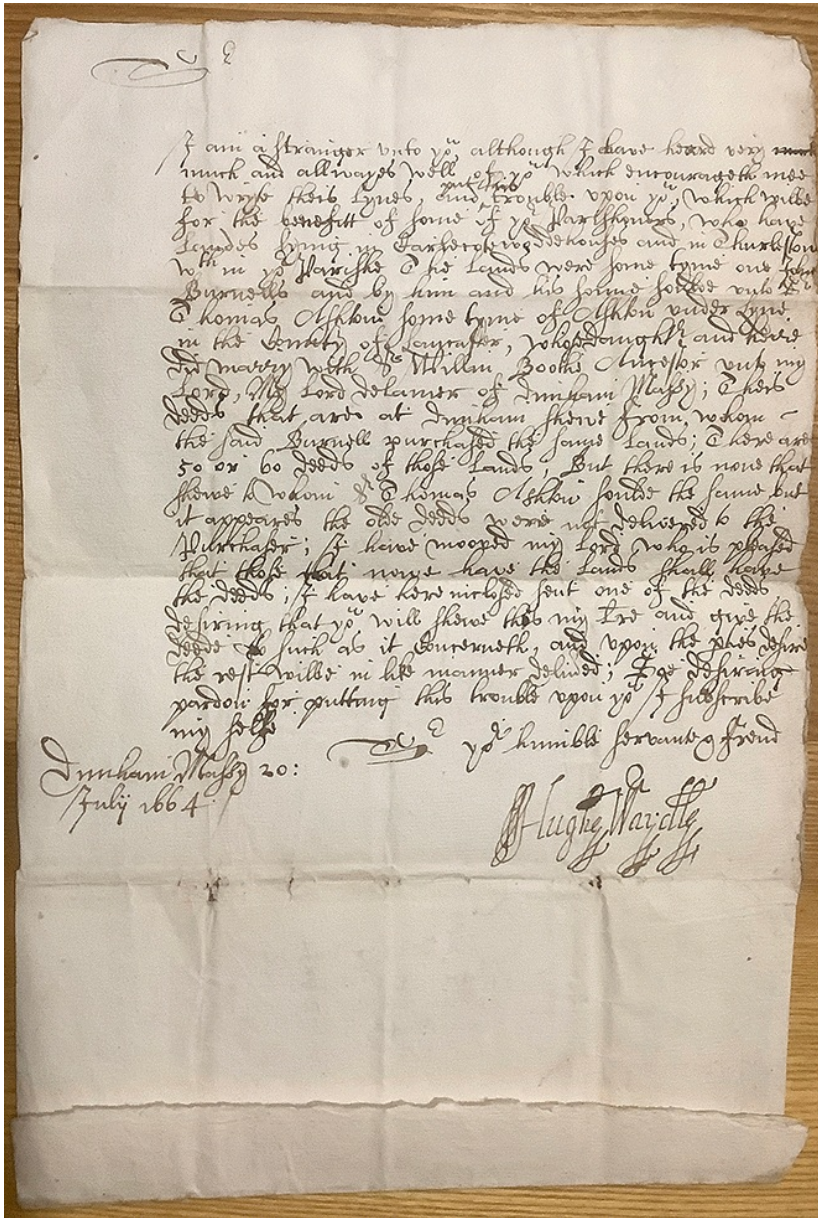 Sr
I am a stranger unto yo^u, although I have heard very much
much and allwayes well of yo^u which encourageth mee
to wryte theis Lynes, and put this trouble upon yo^u, which wilbe
for the benefitt of some of yo^r Parishoners, who have
Landes lying in and in Thurleston
w^th in yo^r Parishe The Lands were some tyme one John
Burnells and by him and his sonne soulde unto S^r
Thomas Ashton some tyme of Ashton under Lyne
in the County of Lancaster, whose daught^r and heire
did marry with S^r Willm Boothe Ancestor unto my
Lord, My Lord delamer of dunham Massy; Theis
deeds that are at dunham shewe from whom
the said Burnell purchased the same Lands; There are
50 or 60 deeds of those Lands; But there is none that
shewe to whom S^r Thomas Ashton soulde the same but
it appeares the olde deeds were not delivered to the
Purchaser; I have mooved my Lord, who is pleased
that those that nowe have the Lands shall have
the deeds; I have here inclosed sent one of the deeds
desiring that yo^u will shewe this my Lre and give the
deede to such as it Concerneth, and upon the pties desire
the rest wilbe in like manner delived; desiring
pardon for putting this trouble upon yo^u I subscribe
my selfe
Sr yo^r humble servante & Frend
Dunham Massy 20:
July 1664:
Hughe Wardle